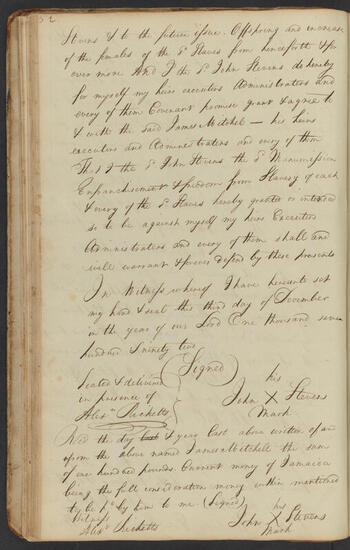 52
Stevens & to the future issue Offspring and increase
of the females of the Sd. Slaves from henceforth & for
ever more And I the Sd. John Stevens do hereby
for myself my heirs executors Administrators and
every of them Covenant promise grant & agree to
& with the said James Mitchel — his heirs
executors and Administrators and every of them
That I the Sd. John Stevens the Sd. Manumission
Enfranchisement & freedom from Slavery of each
& every of the Sd. Slaves hereby granted or intended
so to be against myself my heirs Executors
Administrators and every of them shall and
will warrant & forever defend by these presents
In Witness whereof I have hereunto set
my hand & seal this third day of December
in the year of our Lord One thousand seven
hundred & ninety two
(Signed)
Sealed & delivered
in presence of
Alexr. Ricketts
his
John X Stevens
Mark
Recd the day & year last above written of an
from the above named James Mitchell the sum
of one hundred pounds Current money of Jamaica
being the full consideration money within mentioned
to be pd. by him to me (Signed)
Witness
Alexr. Ricketts
his
John X Stevens
Mark